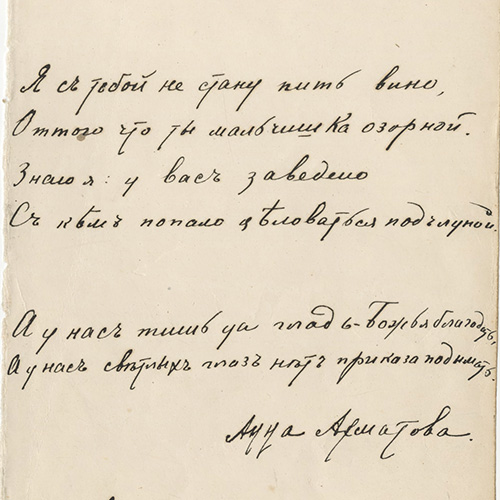 Я съ тобой не стану пить вино,
Оттого что ты мальчишка озорной.
Знаю я: у васъ заведено
Съ кѣмъ попало цѣловаться подъ луной.
А у насъ тишь да гладь - Божья благодать,
А у насъ свѣтлыхъ глазъ нѣтъ приказа подымать.
Анна Ахматова.